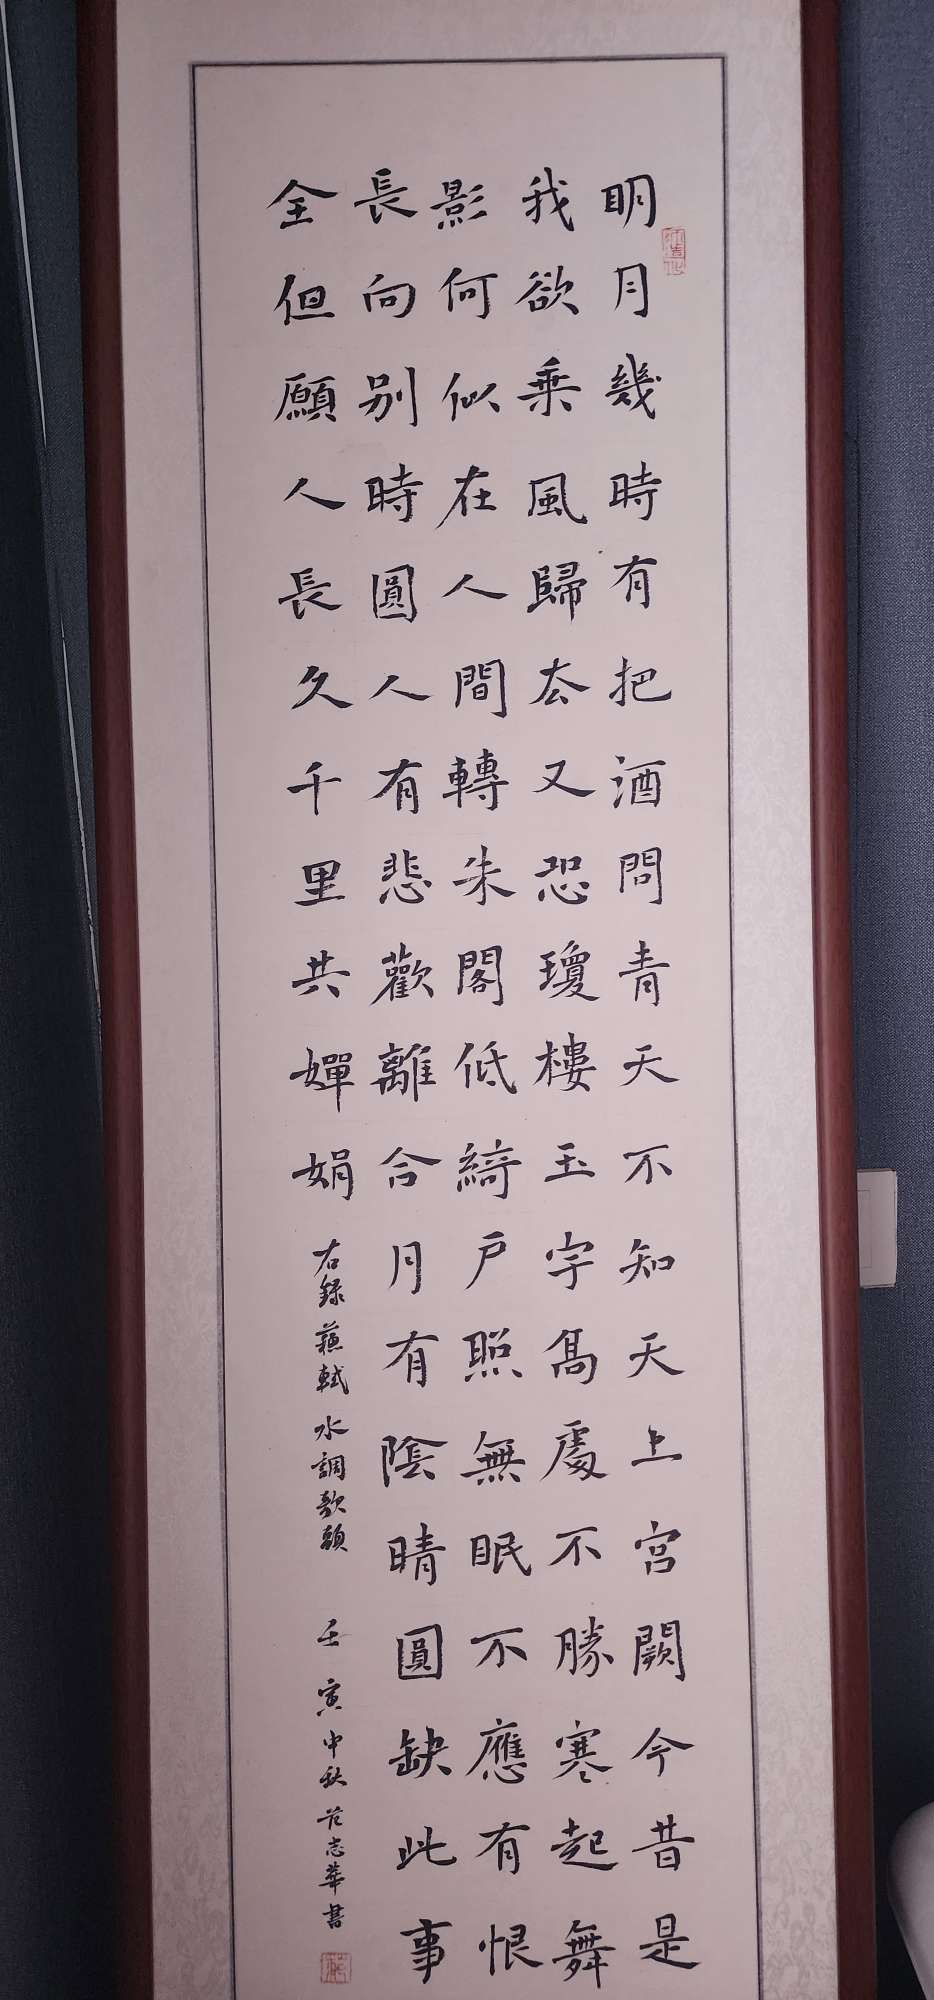 師造化
明月幾時有把酒問青天不知天上宮闕今昔是
我欲乘風歸厺又恐瓊樓玉宇髙處不勝寒起舞
影何似在人間轉朱閣低綺戶照無眠不應有恨
長向别時圓人有悲歡離合月有陰晴圓缺此事
全但願人長久千里共嬋娟
右錄蘇軾水調歌頭 壬寅中秋 范志華書